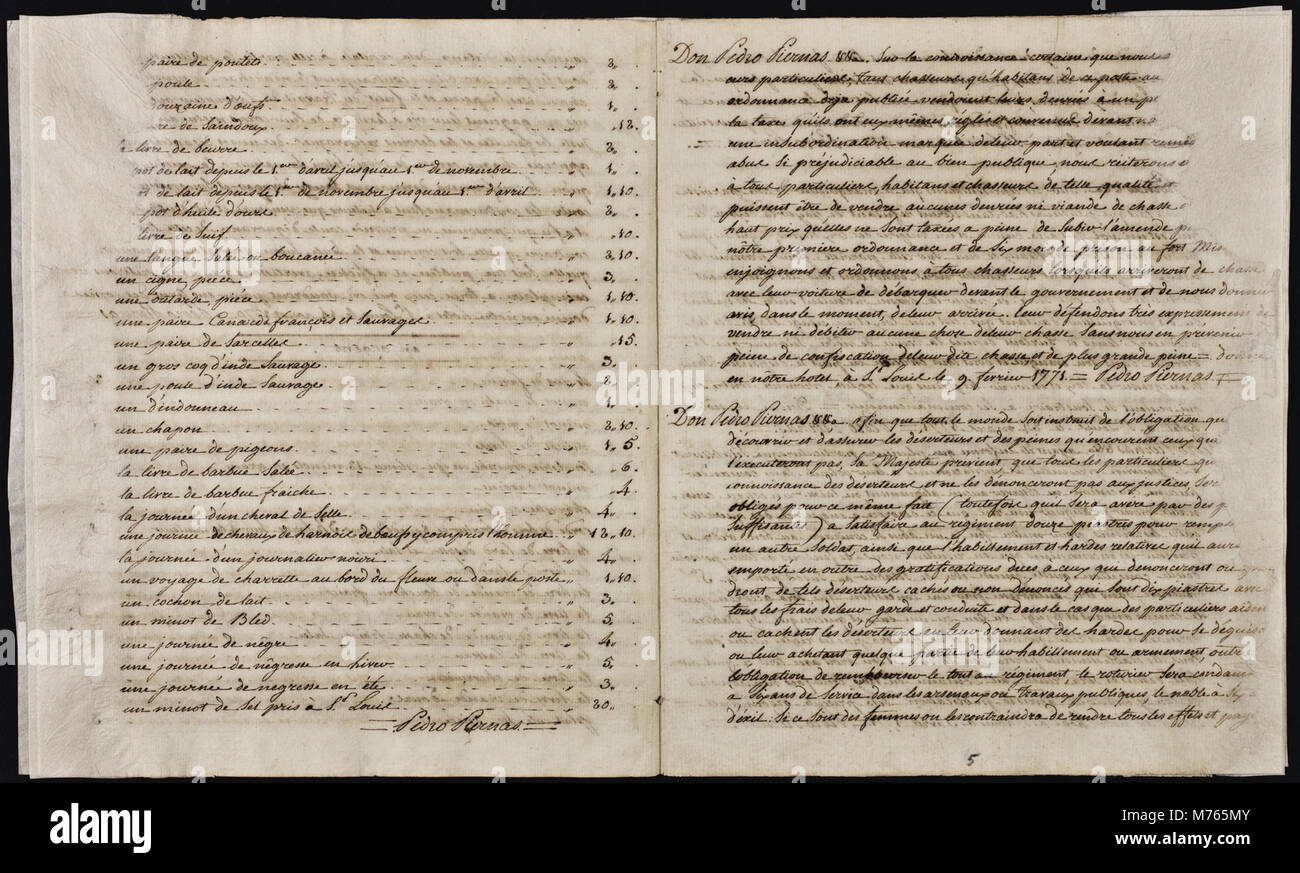 paire de poulets 3.
poule 2.
douzaine d'œufs 1.
de Saindoux 12.
la livre de beurre 2.
pot de lait depuis le 1er d'avril jusqu'au 1er de novembre 1.
de lait depuis le 1er de novembre jusqu'au 1er d'avril 1.10.
pot d'huile d'ours 2.
livre de Suif 10.
une langue Salée ou boucanée 2.10.
un cigne, piece 3.
une outarde, piece 1.10.
une paire Canards françois et Sauvages 1.10.
une paire de Sarcelles 15.
un gros coq d'inde Sauvage 3.
une poule d'inde Sauvage 2.
un d'indonneau 1.
un chapon 2.10.
une paire de pigeons 1.5
la livre de barbue Salée 6.
la livre de barbue fraiche 4.
la journée d'un cheval de Selle 4.
une journée de chevaux de harnois de bœufs y compris l'homme 12.10.
la journée d'un journalier nouri 4.
un voyage de charrette au bord du fleuve ou dans le poste 1.10.
un cochon de lait 3.
un minot de Bled 5.
une journée de négre 4.
une journée de négresse en hiver 5
une journée de negresse en été 3.
un minot de Sel pris à St. Louis 30.
Pedro Piernas
Don Pedro Piernas &&a. Sur la connoissance certaine que nous
particuliers, tant chasseurs qu'habitans de ce poste au
ordonnance deja publiée vendoient leurs denrées à un p
la taxes qu'ils ont eux mêmes réglés et convenus devant no
une insubordination marquée de leur part et voulant remé
abus Si préjudiciable au bien publique, nous reiterons
à tous particuliers, habitans et chasseurs de telle qualité
puissent être de vendre aucunes denrées ni viande de chasse
haut prix qu'elles ne Sont taxées a peine de Subir l'amende p
nôtre premiere ordonnance et de Six mois de prison au fort Mis
enjoignons et ordonnons à tous chasseurs lorsqu'ils arriveront de chasse
avec leur voiture de débarquer devant le gouvernement et de nous donner
avis, dans le moment, de leur arrivée. leur défendons très expressement
vendre ni débiter aucune chose de leur chasse Sans nous en prévenir
peine de confiscation de leur dite chasse et de plus grande peine = donné
en nôtre hotel, à St. Louis le 9. fevrier 1771 = Pedro Piernas
Don Pedro Piernas &&a. afin que tout le monde Soit instruit de l'obligation qu
découvrir et d'assurer les déserteurs et des peines qu'encourent ceux qui
l'executeront pas, Sa Majesté prévient, que tous les particuliers qu
connoissance des déserteurs et ne les dénonceront pas aux justices, Ser
obligés pour ce même fait (toutefois qu'il Sera avéré par des p
Suffisantes) a Satisfaire au regiment douze piastres pour rempl
un autre Soldat, ainsi que l'habillement et hardes relatives qu'il aura
emporté en outre des gratifications dues a ceux que dénonceront ou
dront de tels déserteurs cachés ou non dénoncés que Sont dix piastres avec
tous les frais de leur garde et conduite et dans le cas que des particuliers aident
ou cachent les déserteurs en leur donnant des hardes pour Se déguiser
ou leur achetant quelque partie de leur habillement ou armement, outre
l'obligation de rembourser le tout au régiment, le roturier Sera condamné
a Six ans de Service dans les arsenaux ou travaux publiques, le noble à Six
d'exil. Si ce Sont des femmes on les contraindra de rendre tous les effets et
5
alamy
M765MY
www.alamy.com